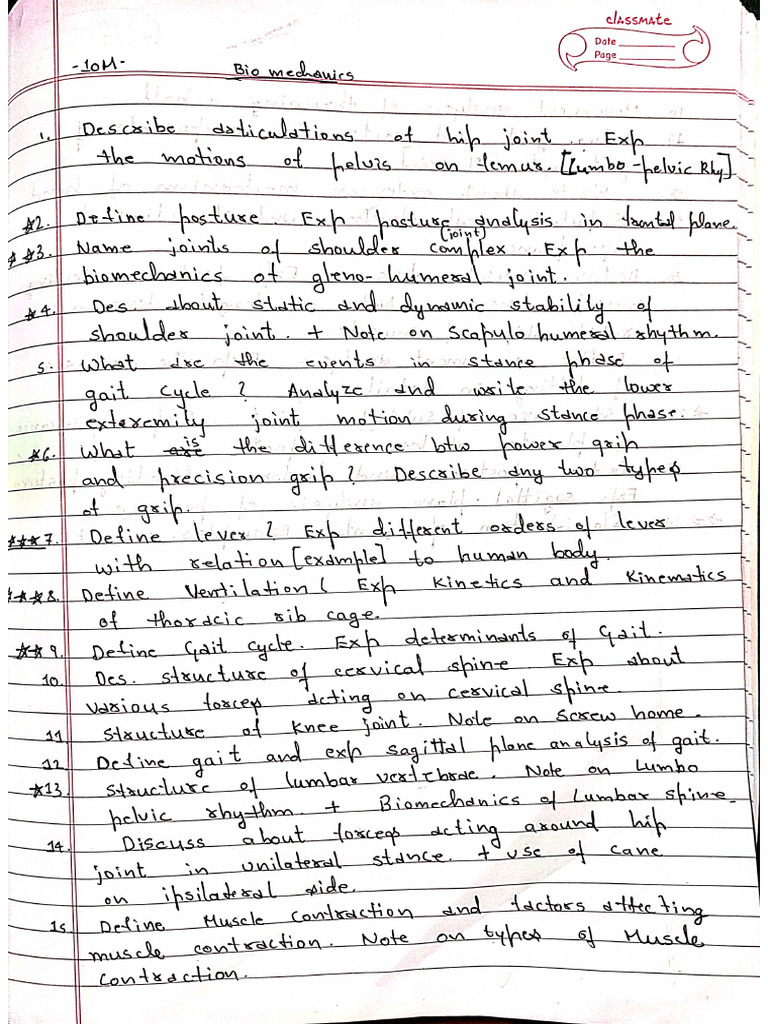 classmate
Date
Page
-10M-
Bio mechanics
1. Describe articulations of hip joint. Exp
the motions of pelvis on femur. [Lumbo-pelvic Rhy]
*2. Define posture. Exp posture analysis in frontal plane.
**3. Name joints of shoulder (joint) complex. Exp the
biomechanics of gleno-humeral joint.
*4. Des. about static and dynamic stability of
shoulder joint. + Note on Scapulo humeral rhythm.
5. What are the events in stance phase of
gait cycle? Analyze and write the lower
exteremity joint motion during stance phase.
*6. What are is the difference btw power grip
and precision grip? Describe any two types
of grip.
***7. Define lever? Exp different orders of lever
with relation [example] to human body.
***8. Define Ventilation? Exp Kinetics and Kinematics
of thoracic rib cage.
**9. Define Gait cycle. Exp determinants of Gait.
10. Des. structure of cervical spine. Exp about
various forces acting on cervical spine.
11. Structure of Knee joint. Note on Screw home.
12. Define gait and exp sagittal plane analysis of gait.
*13. Structure of lumbar vertebrae. Note on Lumbo
pelvic rhythm. + Biomechanics of Lumbar spine.
14. Discuss about forces acting around hip
joint in unilateral stance. + use of cane
on ipsilateral side.
15. Define Muscle contraction and factors affecting
muscle contraction. Note on types of Muscle
Contraction.